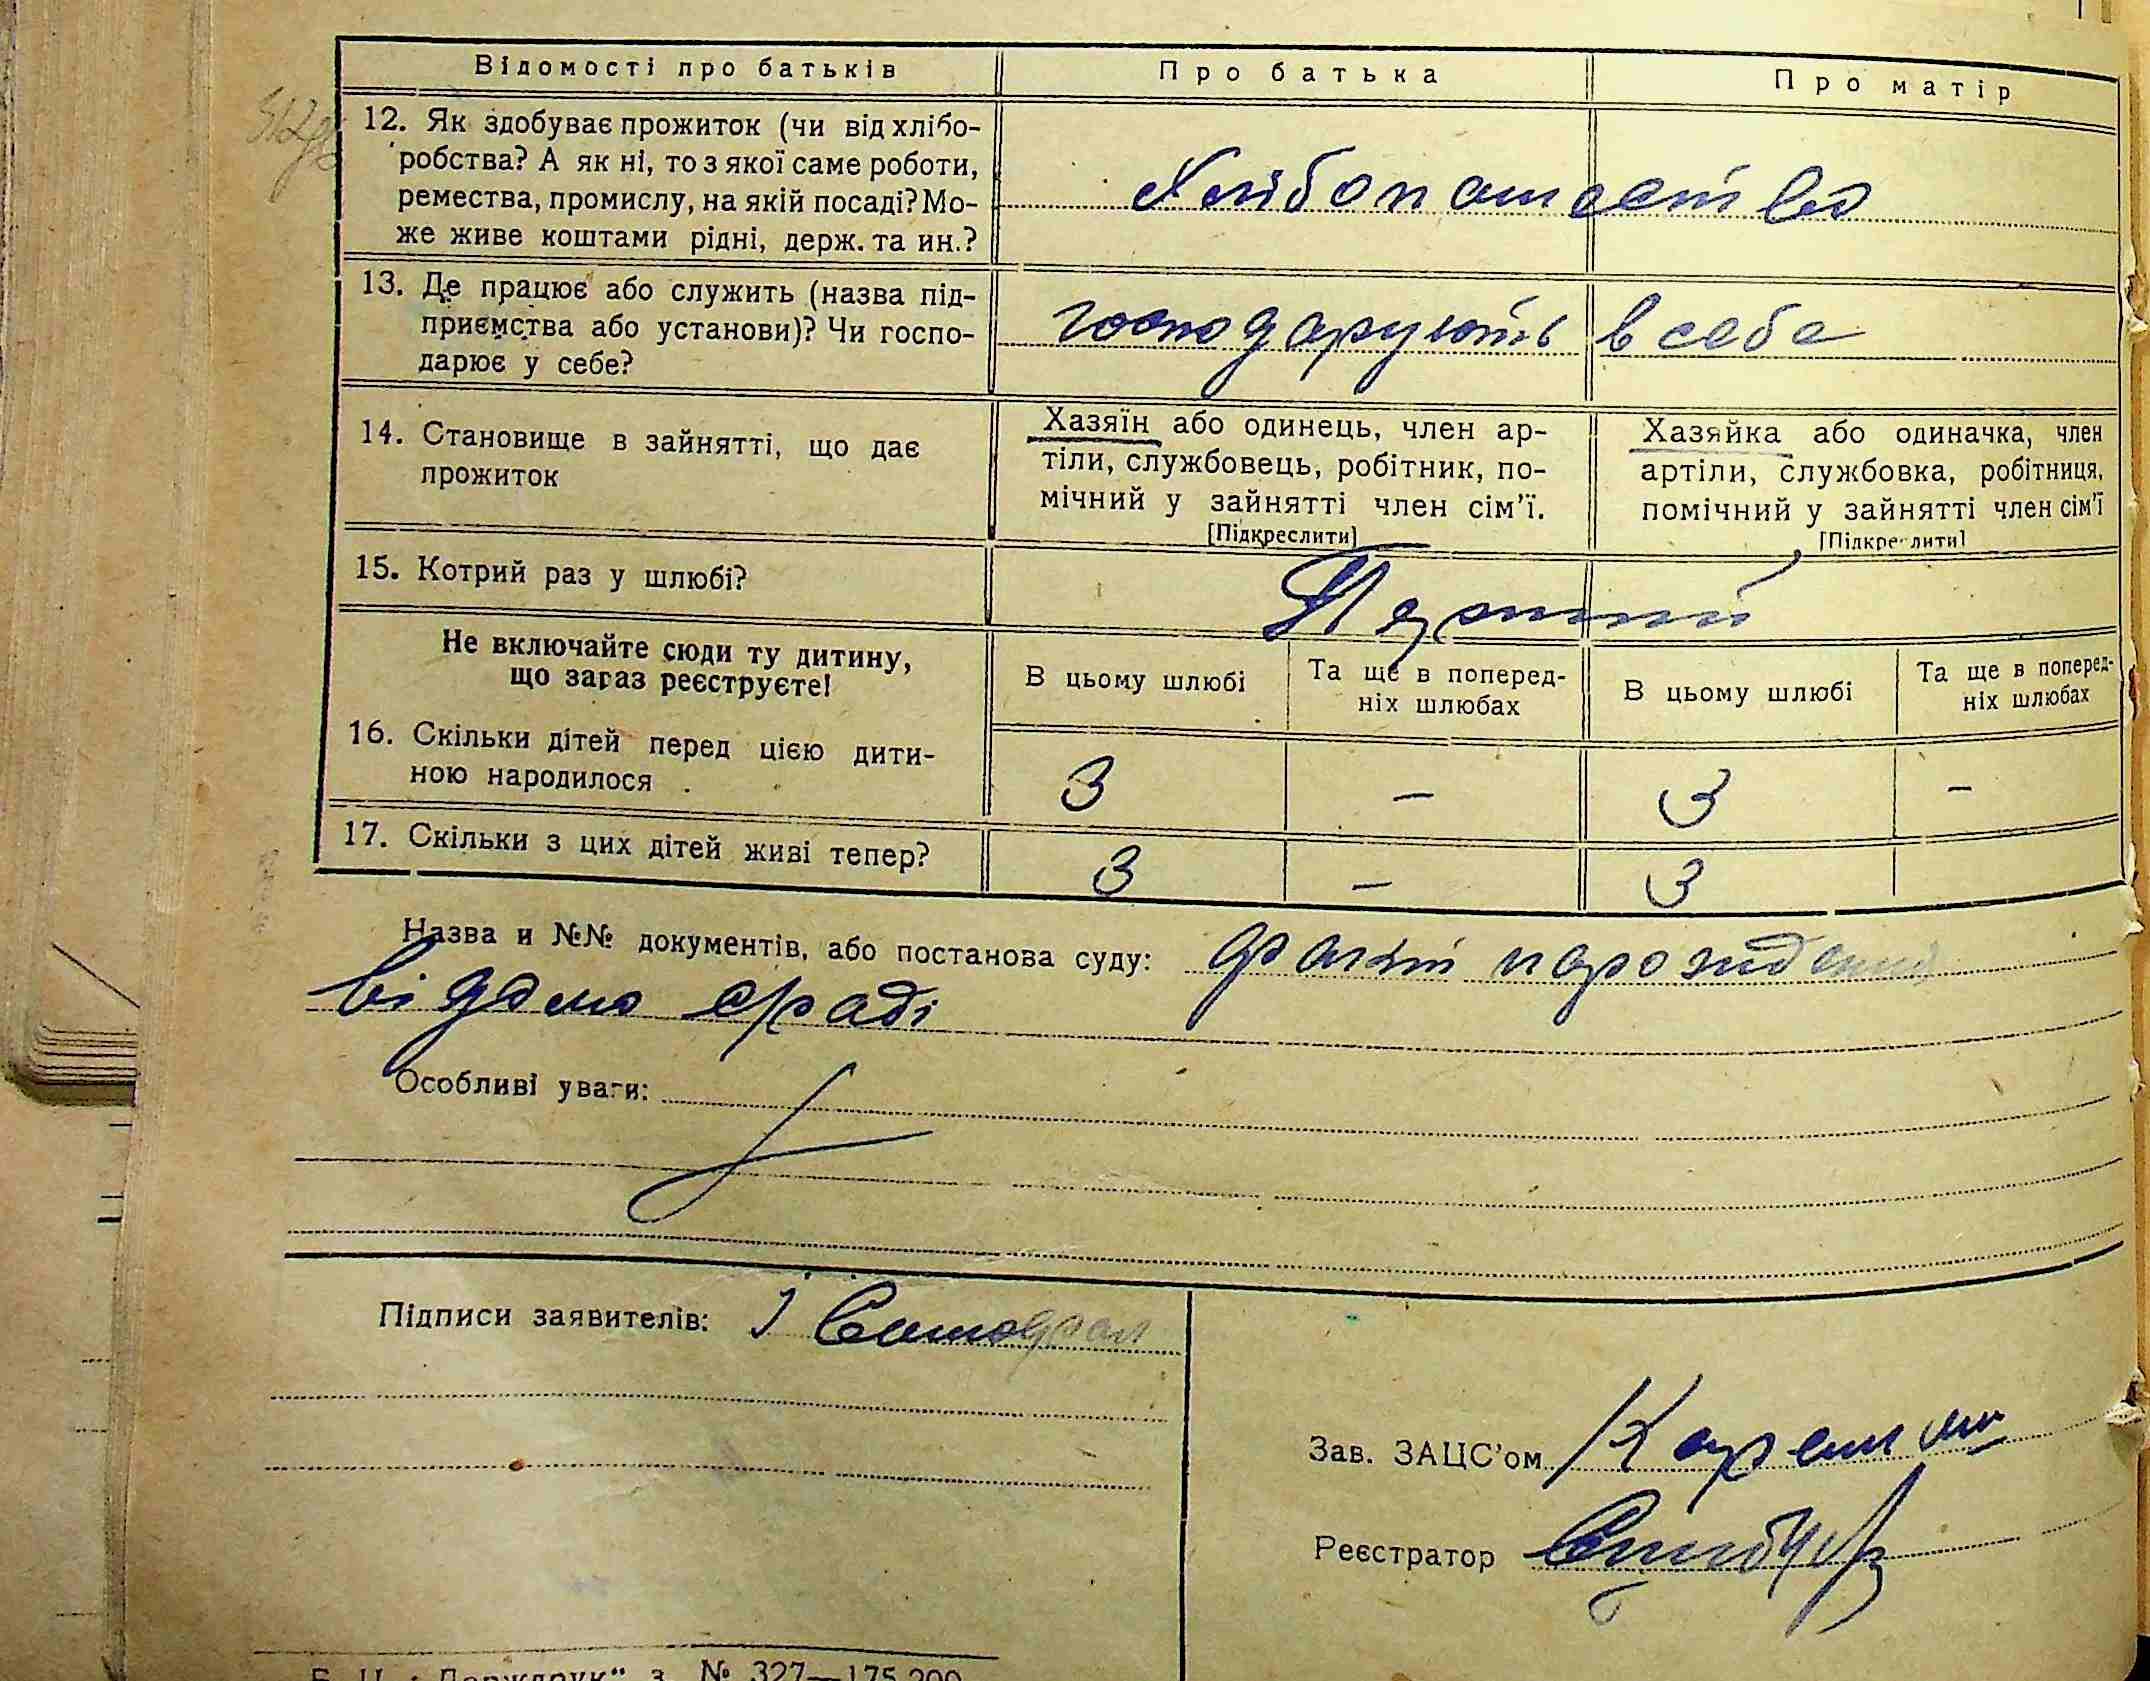 Відомості про батьків Про батька Про матір
12. Як здобуває прожиток (чи від хлібо-
робства? А як ні, то з якої саме роботи,
ремества, промислу, на якій посаді? Мо-
же живе коштами рідні, держ. та ин.?
Хлібопашество
13. Де працює або служить (назва під-
приємства або установи)? Чи госпо-
дарює у себе?
господарують в себе
14. Становище в зайнятті, що дає
прожиток
Хазяїн або одинець, член ар-
тіли, службовець, робітник, по-
мічний у зайнятті член сім'ї.
[Підкреслити]
Хазяйка або одиначка, член
артіли, службовка, робітниця,
помічний у зайнятті член сім'ї
[Підкреслити]
15. Котрий раз у шлюбі?
Перший
Не включайте сюди ту дитину,
що зараз реєструєте!
В цьому шлюбі
Та ще в поперед-
ніх шлюбах
В цьому шлюбі
Та ще в поперед-
ніх шлюбах
16. Скільки дітей перед цією дити-
ною народилося
3 — 3 —
17. Скільки з цих дітей живі тепер?
3 — 3
Назва и №№ документів, або постанова суду: факт
відомо сраді
Особливі уваги:
Підписи заявителів: І
Зав. ЗАЦС'ом
Реєстратор
№ 327—175.200